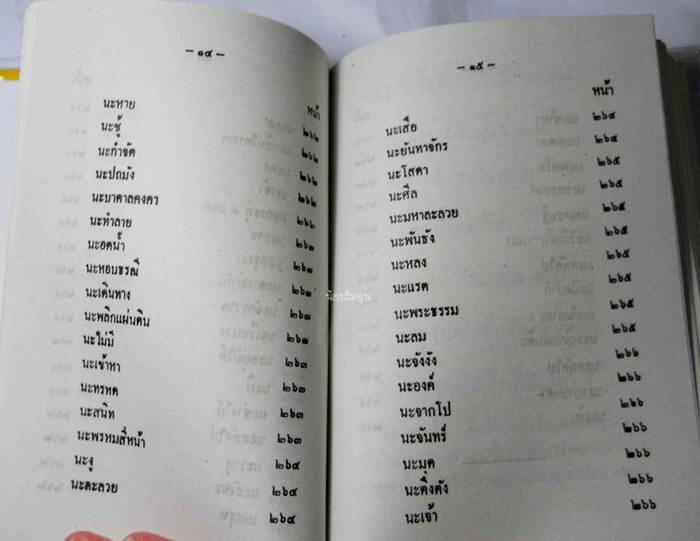 – ๑๔ –
หน้า
นะหาย ๒๖๒
นะชู้ ๒๖๒
นะกำจัด ๒๖๒
นะปถมัง ๒๖๒
นะบาดาลคงคา ๒๖๒
นะทำลาย ๒๖๓
นะอดน้ำ ๒๖๓
นะหอบธรณี ๒๖๓
นะเดินทาง ๒๖๓
นะพลิกแผ่นดิน ๒๖๓
นะไม่มี ๒๖๓
นะเข้าหา ๒๖๓
นะทรหด ๒๖๓
นะสนิท ๒๖๓
นะพรหมสี่หน้า ๒๖๔
นะงู ๒๖๔
นะตะลวย ๒๖๔
– ๑๕ –
หน้า
นะเสือ ๒๖๔
นะยันทาจักร ๒๖๔
นะโสดา ๒๖๕
นะศีล ๒๖๕
นะมหาละลวย ๒๖๕
นะพันธัง ๒๖๕
นะหลง ๒๖๕
นะแรด ๒๖๕
นะพระธรรม ๒๖๕
นะลม ๒๖๕
นะจังงัง ๒๖๖
นะองค์ ๒๖๖
นะจากโป ๒๖๖
นะจันทร์ ๒๖๖
นะมุด ๒๖๖
นะติ่งตัง ๒๖๖
นะเจ้า ๒๖๖